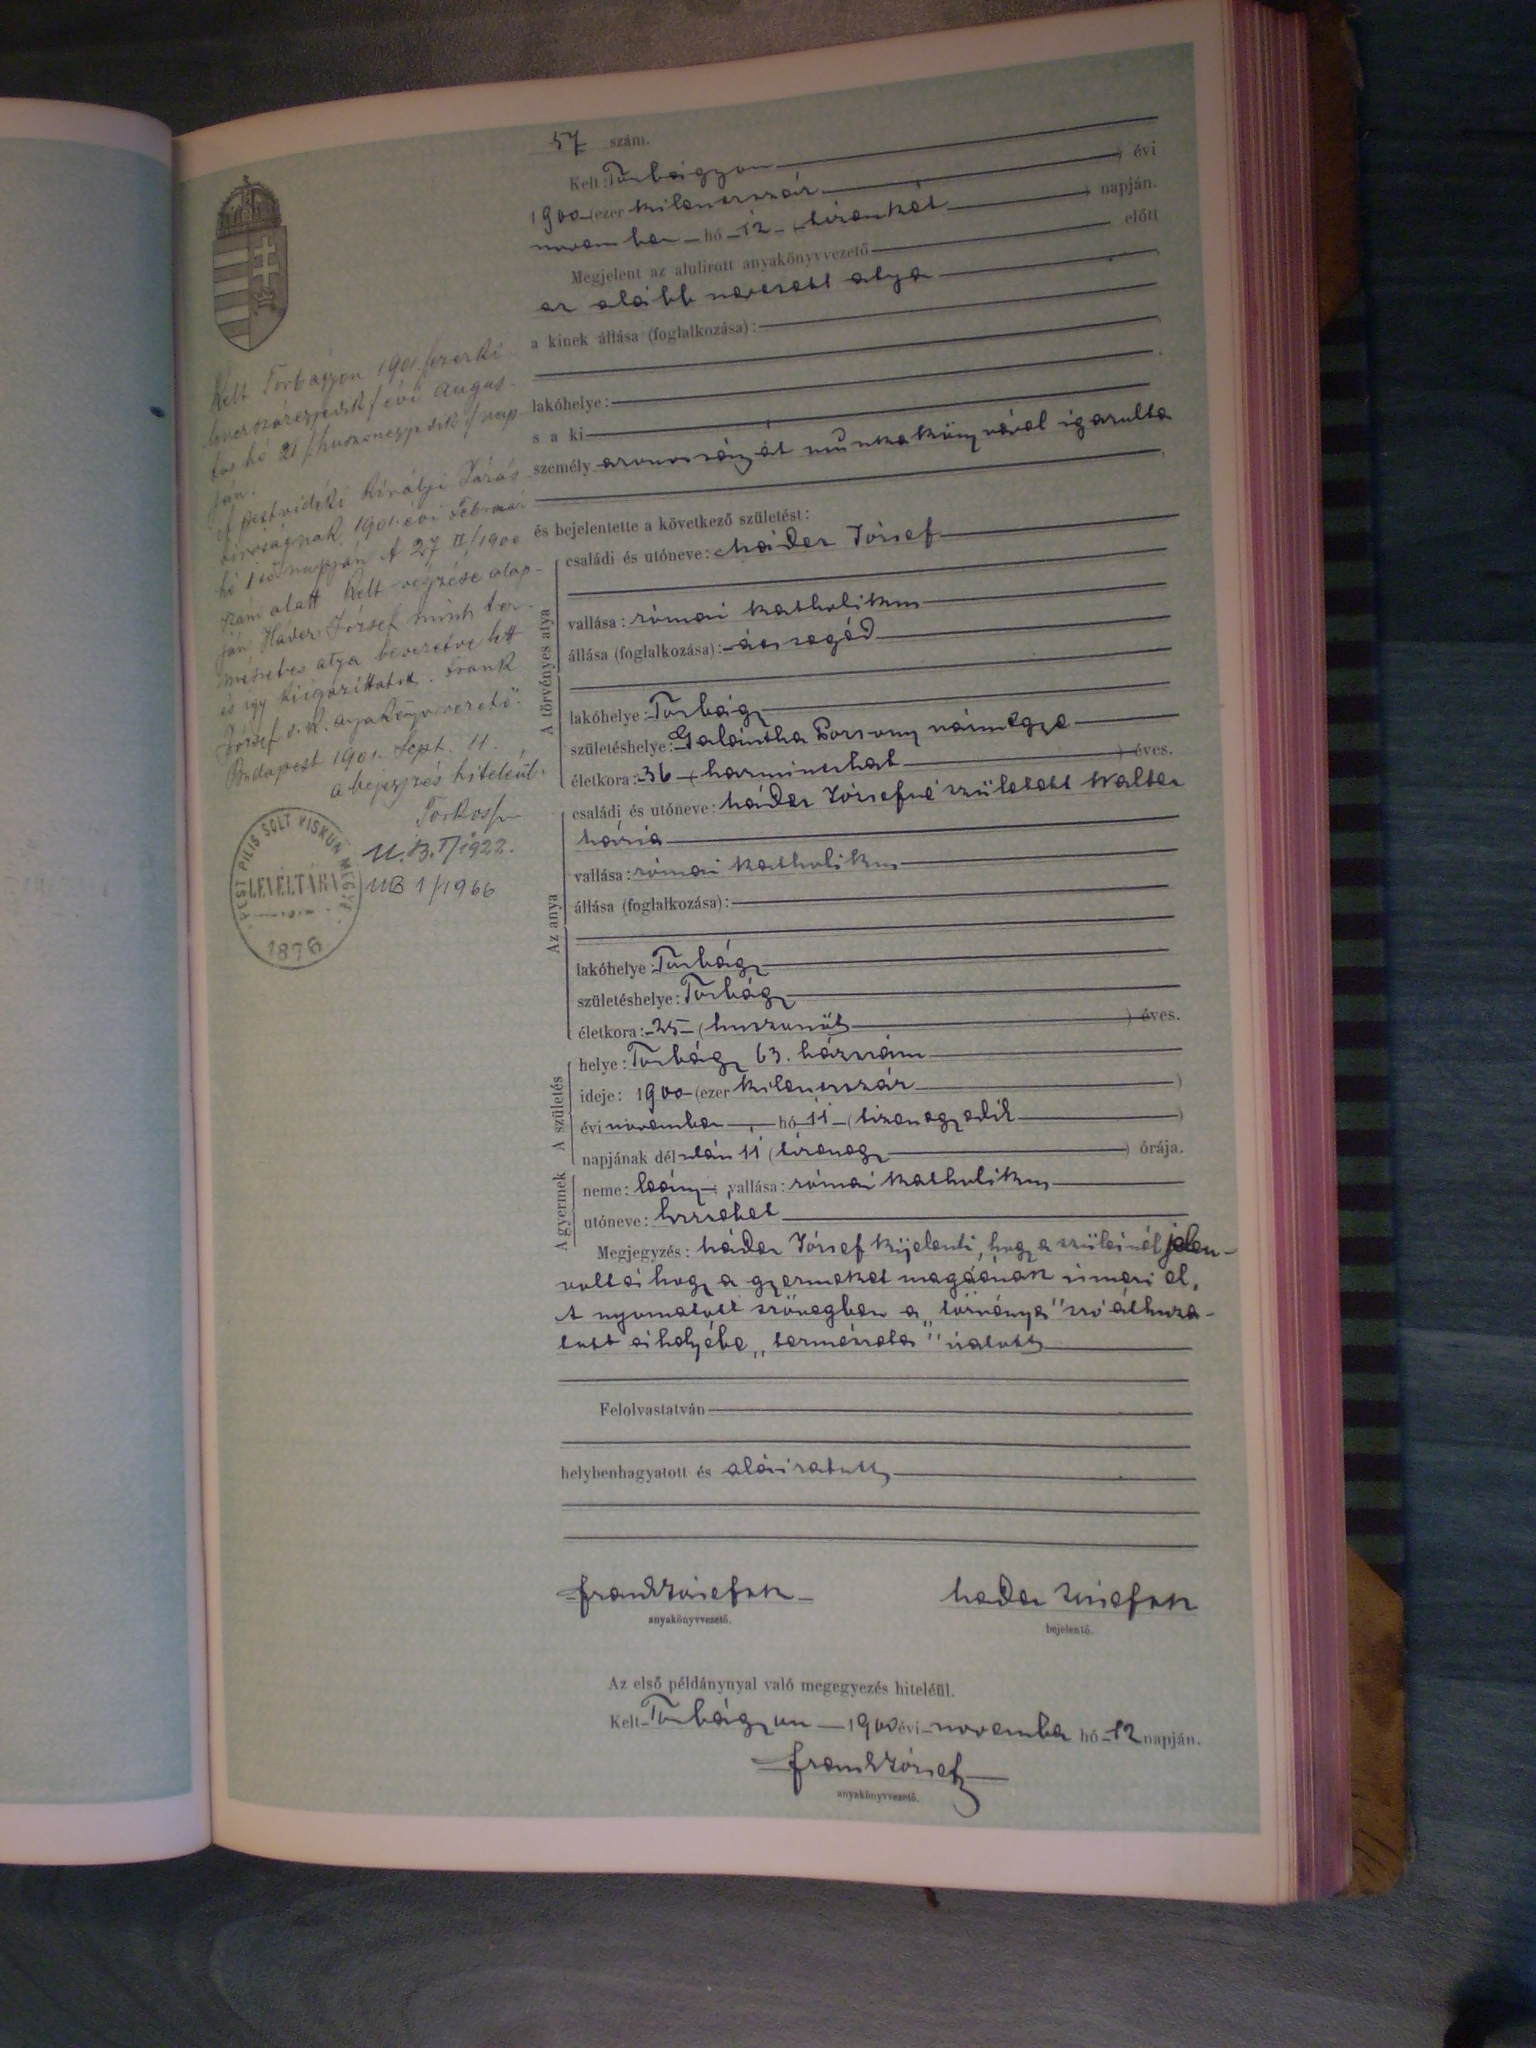 57 szám.
Kelt: Torbágyon
1900 (ezer kilencszáz ) évi
november hó 12 (tizenkét ) napján.
Megjelent az alulirott anyakönyvvezető előtt
az alább nevezett atya
a kinek állása (foglalkozása):
lakóhelye:
s a ki
személy azonosságát munkakönyvével igazolta
és bejelentette a következő születést:
A törvényes atya
családi és utóneve: Háder József
vallása: római katholikus
állása (foglalkozása): ács segéd
lakóhelye: Torbágy
születéshelye: Galántha Pozsony vármegye
életkora: 36 (harminchat ) éves.
Az anya
családi és utóneve: Háder Józsefné született Walter
Mária
vallása: római katholikus
állása (foglalkozása):
lakóhelye: Torbágy
születéshelye: Torbágy
életkora: 25 (huszonöt ) éves.
A születés
helye: Torbágy 63. házszám
ideje: 1900 (ezer kilencszáz )
évi november hó 11 (tizenegyedik )
napjának dél után 11 (tizenegy ) órája.
A gyermek
neme: leány; vallása: római katholikus
utóneve: Erzsébet
Megjegyzés: Háder József kijelenti, hogy a szülésnél jelen
volt és hogy a gyermeket magáénak ismeri el.
A nyomatott szövegben a „törvényes" szó áthuza-
tott és helyébe „természetes" iratott
Felolvastatván
helybenhagyatott és aláiratott
Frank József sk
anyakönyvvezető.
Hader József sk
bejelentő.
Az első példánynyal való megegyezés hiteléül.
Kelt Torbágyon 1900 évi november hó 12 napján.
Frank József
anyakönyvvezető.
Kelt Torbágyon 1901. /ezerki
lencszázegyedik/ évi augus-
tus hó 21 /huszonegyedik/ nap-
ján.
A pestvidéki királyi Járás
biróságnak 1901. évi Február
hó 1 ső napján A 27 II/1900
szám alatt kelt végzése alap-
ján Háder József mint ter-
mészetes atya bevezetve lett
és igy kiigazittatott. Frank
József s. k. anyakönyvvezető.
Budapest 1901. Sept. 11.
a bejegyzés hiteleül.
U.B. I/1922.
UB 1/1966
PEST PILIS SOLT KISKUN MEGYE
LEVÉLTÁRA
1876